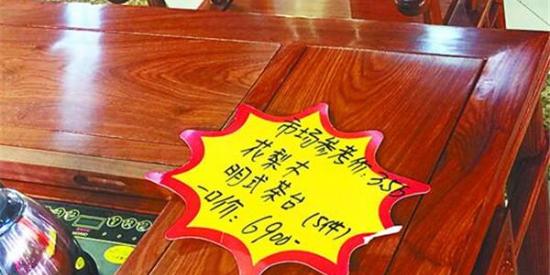 市场参考价:3.5万
花梨木
明式茶台(5件)
一口价:6900-